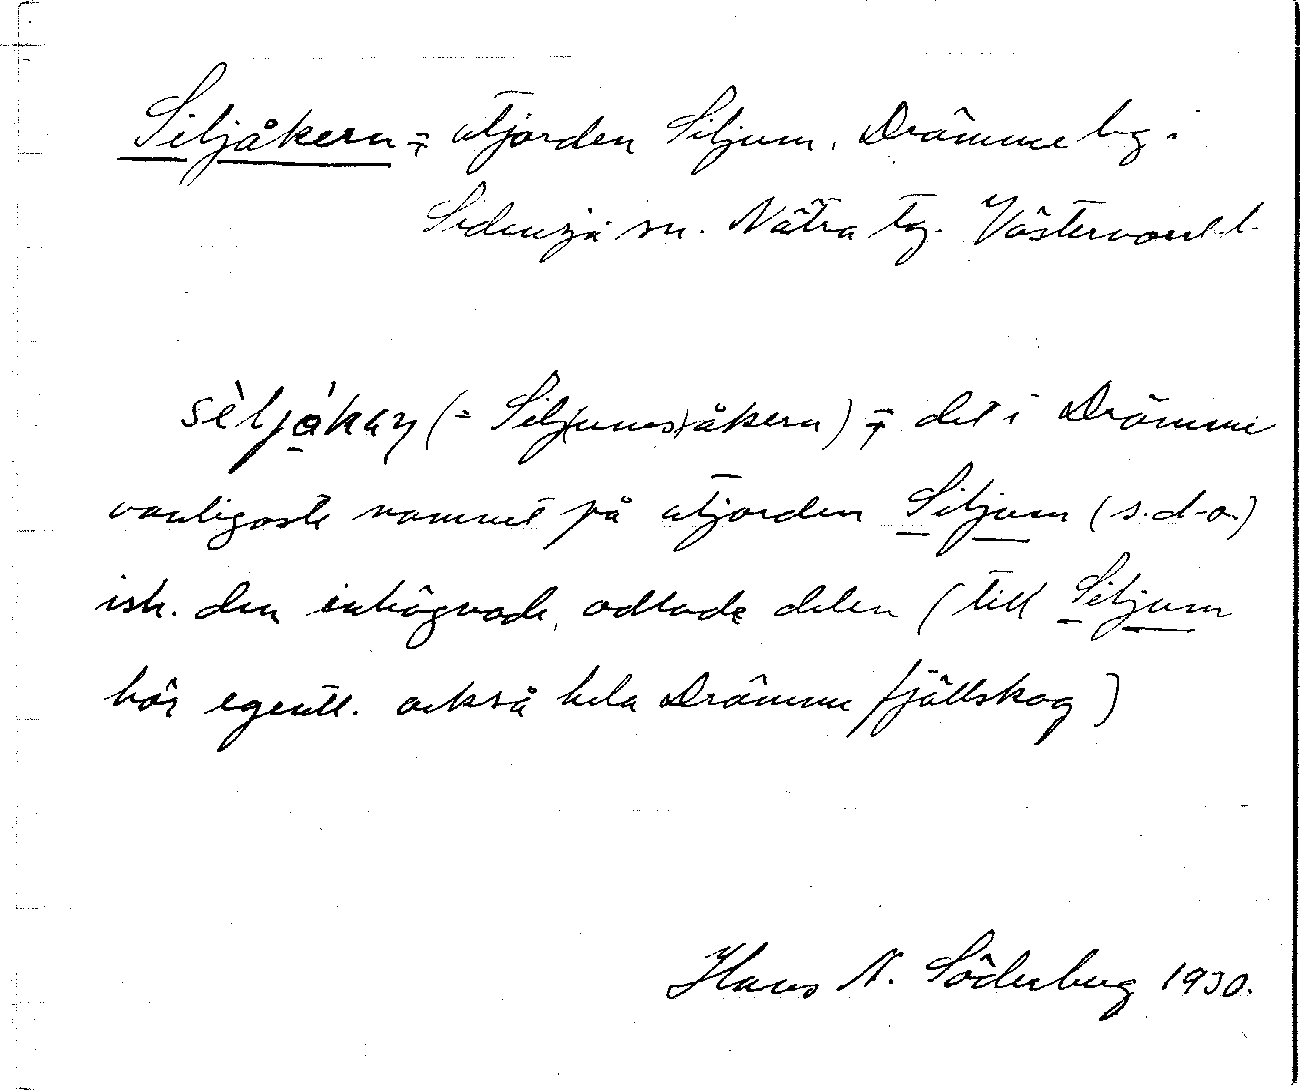 Siljåkern ÷ utjorden Siljum, Drömme by i
Sidensjö sn. Nätra tg. Västernorrl. l.
sèljákaɳ (= Silj(ums)åkern) ÷ det i Drömme
vanligaste namnet på utjorden Siljum (s.d.o.)
ish. den inhägnade, odlade delen (till Siljum
hör egentl. också hela Drömme fjällskog)
Hans N. Söderberg 1930.